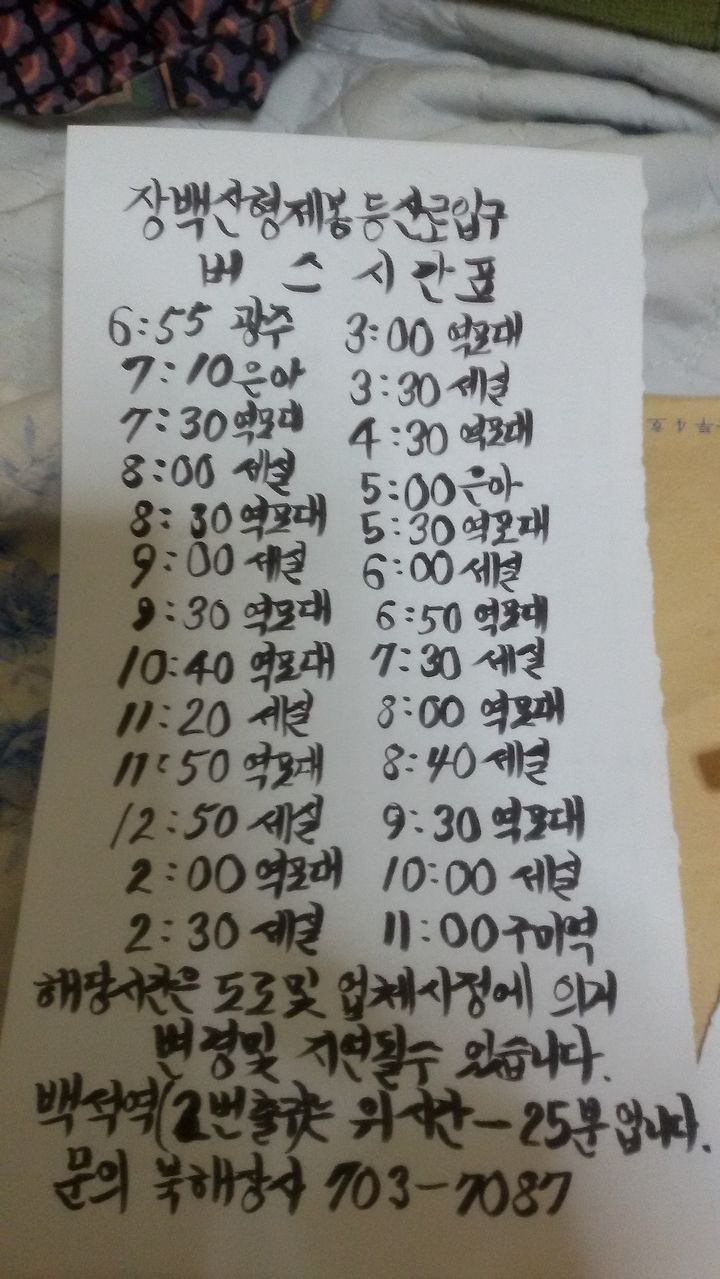 장백산형제봉등산로입구
버스시간표
6:55 광주
7:10 은아
7:30 역포대
8:00 세설
8:30 역포대
9:00 세설
9:30 역포대
10:40 역포대
11:20 세설
11:50 역포대
12:50 세설
2:00 역포대
2:30 세설
3:00 역포대
3:30 세설
4:30 역포대
5:00 은아
5:30 역포대
6:00 세설
6:50 역포대
7:30 세설
8:00 역포대
8:40 세설
9:30 역포대
10:00 세설
11:00 구미역
해당시간은 도로및 업체사정에 의거
변경및 지연될수 있습니다.
백석역(2번출구)는 위시간-25분입니다.
문의 703-7087